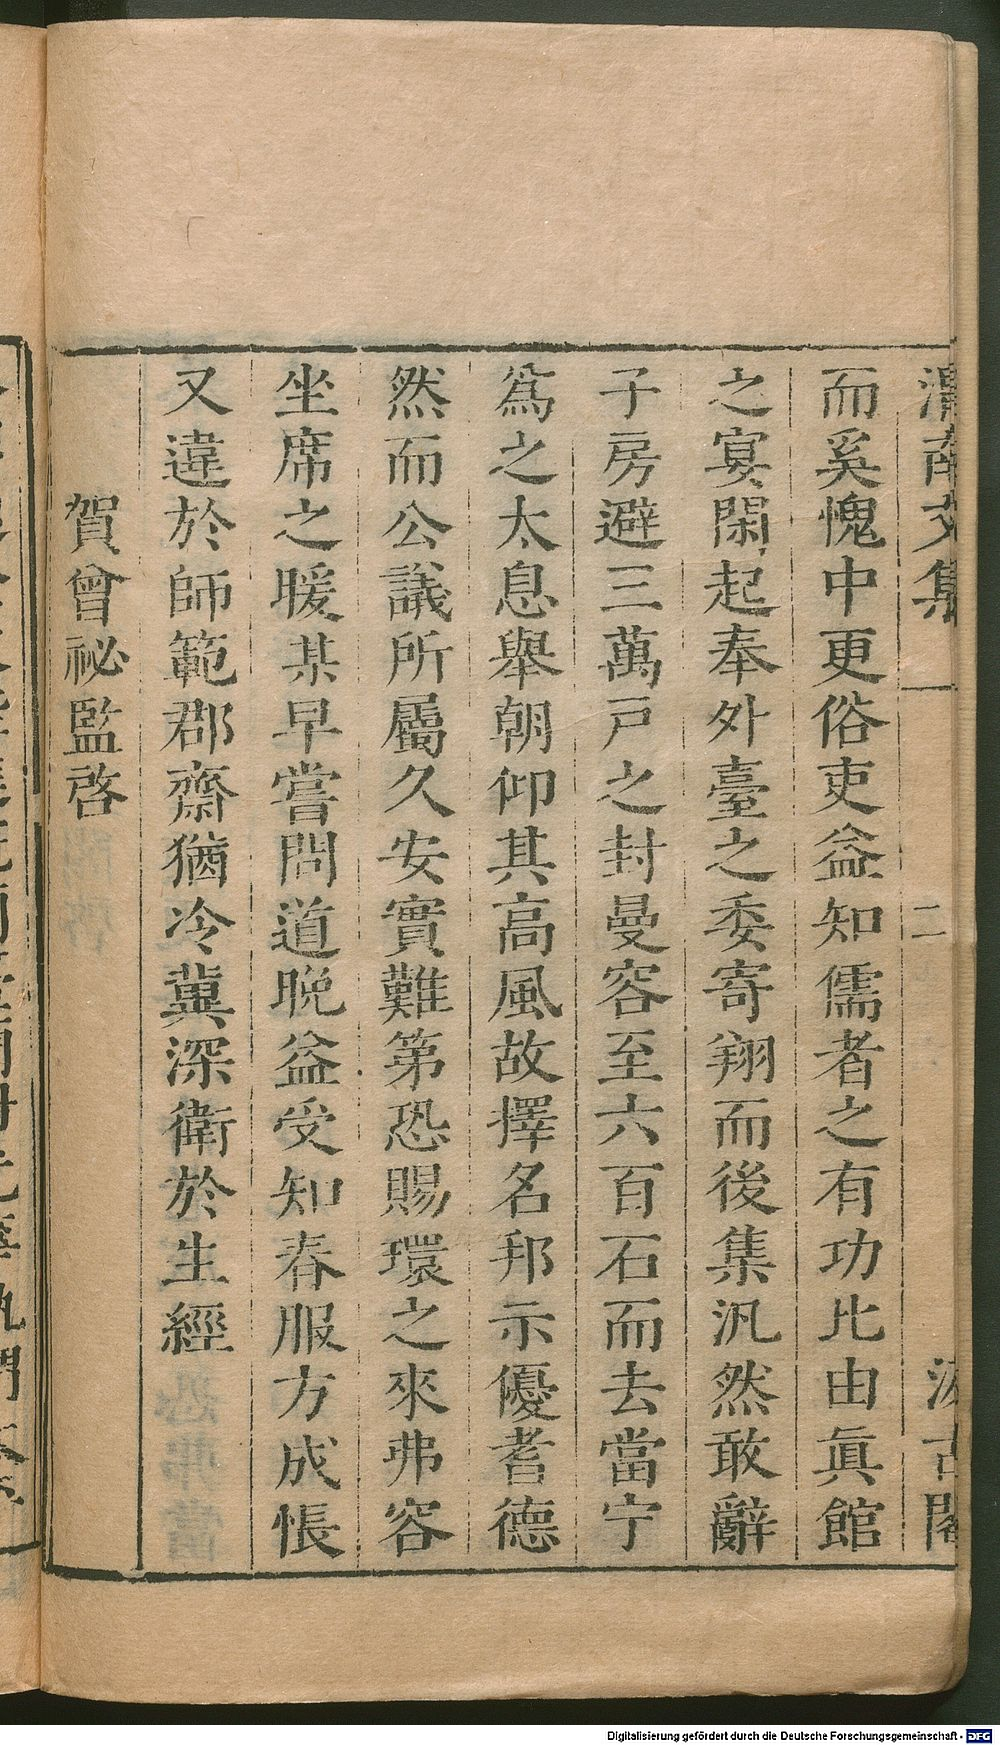 渭南文集 二 汲古閣
而奚愧中更俗吏益知儒者之有功比由眞館
之宴閑起奉外臺之委寄翔而後集汎然敢辭
子房避三萬戸之封曼容至六百石而去當宁
爲之太息舉朝仰其高風故擇名邦示優耆德
然而公議所屬久安實難第恐賜環之來弗容
坐席之暖某早嘗問道晚益受知春服方成悵
又違於師範郡齋猶冷冀深衛於生經
賀曾祕監啓
Digitalisierung gefördert durch die Deutsche Forschungsgemeinschaft - DFG